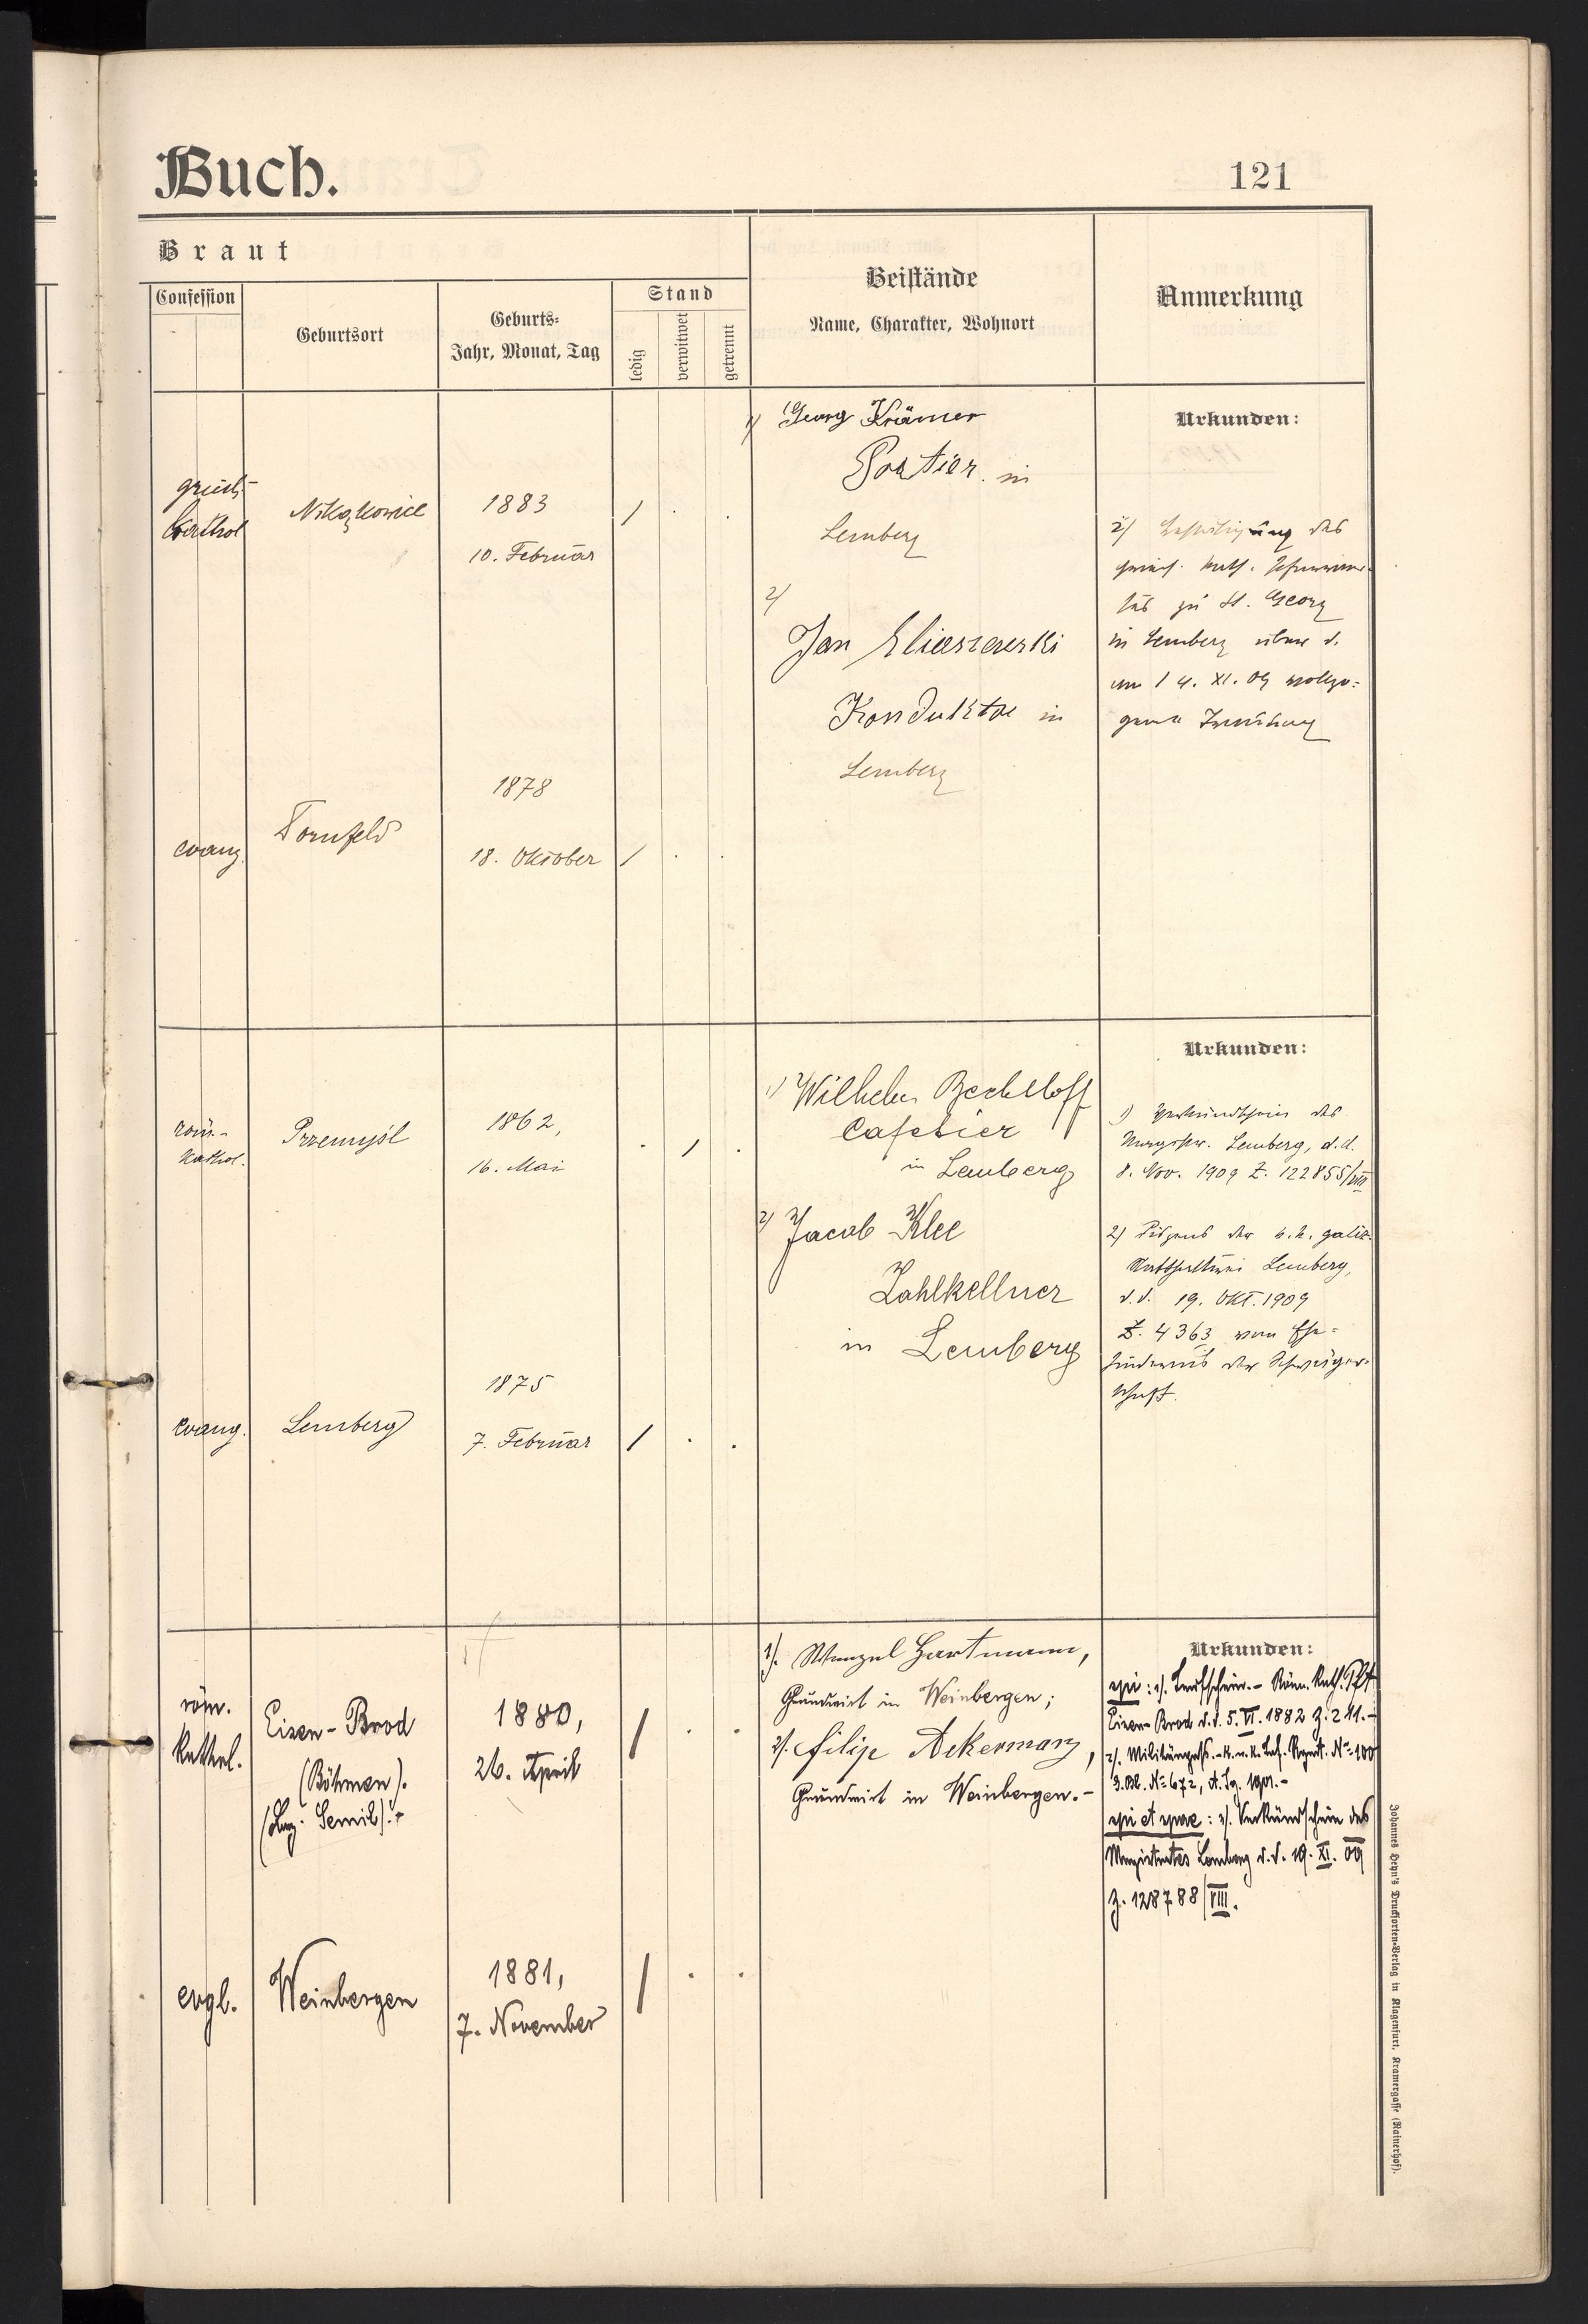 Buch.
121
Braut
Confession
Geburtsort
Geburts-
Jahr, Monat, Tag
Stand
ledig
verwitwet
getrennt
Beistände
Name, Charakter, Wohnort
Anmerkung
griech.
kathol
1883
10. Februar
1) Georg Krämer
Portier in
Lemberg
2)
Jan Eliaszewski
Konduktor in
Lemberg
Urkunden:
2) Bestätigung des
zu St. Georg
in Lemberg d.
am 14. XI. 09 vollzo=
gene Trauung
evang.
Dornfeld
1878
18. Oktober
röm.-
kathol.
Przemyśl
1862,
16. Mai
1) Wilhelm Bechtloff
Cafetier
in Lemberg
2) Jacob Klee
Zahlkellner
in Lemberg
Urkunden:
1) Verkündschein des
Magistr. Lemberg, d.d.
8. Nov. 1909 Z. 122855/VIII
2) Dispens der k.k. galiz.
Statthalterei Lemberg,
d.d. 19. Okt. 1909
Z. 4363 vom Ehe=
hindernis der Schwäger=
schaft.
evang.
Lemberg
1875
7. Februar
röm.
kathol.
Eisen-Brod
(Böhmen).
(Bez. Semil).-
1880,
26. April
1). Wenzel Hartmann,
Grundwirt in Weinbergen;
2). Filip Ackermann,
Grundwirt in Weinbergen.-
Urkunden:
spi: 1). Taufschein.- Röm. kath. PfA
Eisen-Brod d.d. 5. VI. 1882 Z. 211.-
2). Militärpaß.- k.u.k. Inf. Regmt. No 100
G.Bl. No 672, A.Jg. 1901.-
spi et spae: 3). Verkündschein des
Magistrates Lemberg d.d. 19. XI. 09
Z. 128788/VIII.
evgl.
Weinbergen
1881,
7. November
Johannes Heyn's Drucksorten-Verlag in Klagenfurt, Kramergasse (Rainerhof).